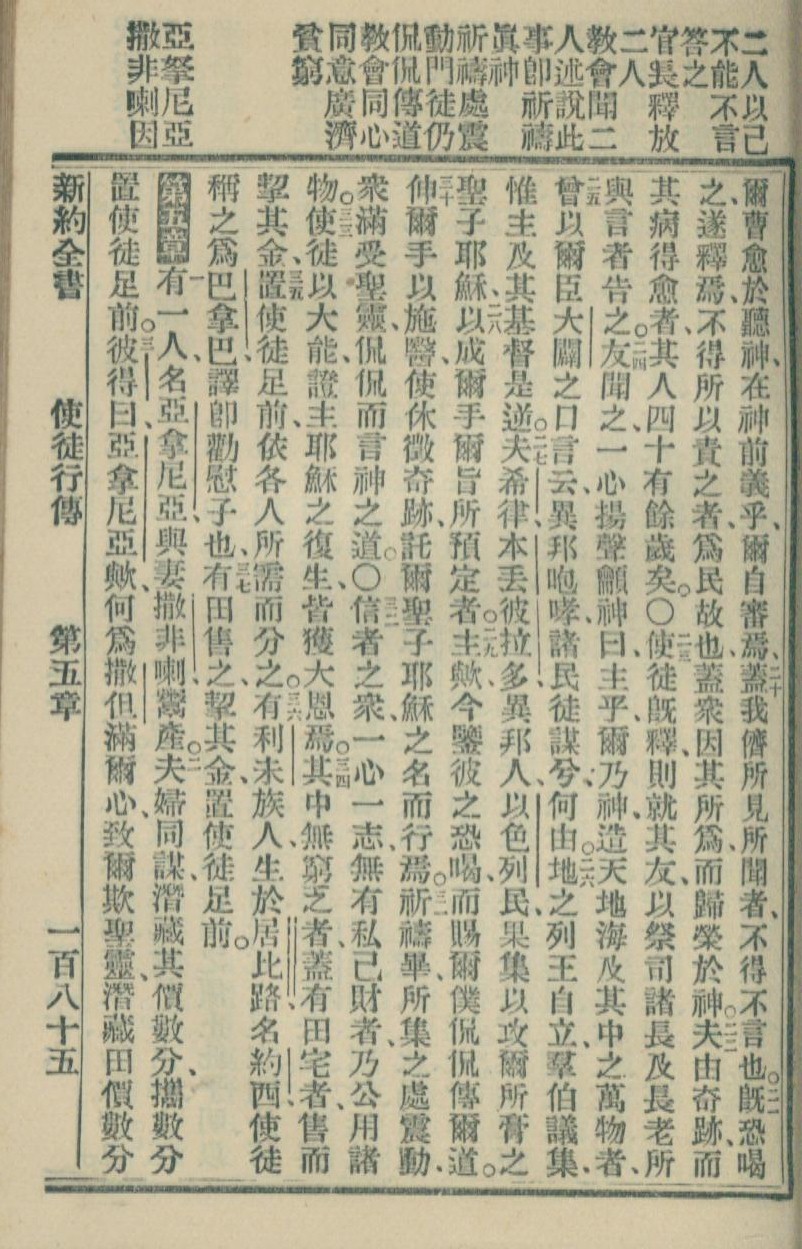 二人以己
不能不言
答之
官長釋放
二人
教會聞二
人述說此
事卽祈禱
眞神
祈禱處震
動門徒仍
侃侃傳道
教會同心
同意廣濟
貧窮
亞拏尼亞
撒非喇因
爾曹愈於聽神、在神前義乎、爾自審焉、二十蓋我儕所見所聞者、不得不言也。二一旣恐喝
之、遂釋焉、不得所以責之者、爲民故也、蓋衆因其所爲、而歸榮於神。二二夫由奇跡、而
其病得愈者、其人四十有餘歲矣。〇二三使徒旣釋、則就其友、以祭司諸長及長老所
與言者告之。二四友聞之、一心揚聲龥神曰、主乎、爾乃神、造天地海及其中之萬物者、
二五曾以爾臣大闢之口言云、異邦咆哮、諸民徒謀兮、何由。二六地之列王自立、羣伯議集、
惟主及其基督是逆。二七夫希律、本丟彼拉多、異邦人、以色列民、果集以攻爾所膏之
聖子耶穌、二八以成爾手爾旨、所預定者。二九主歟、今鑒彼之恐喝、而賜爾僕侃侃傳爾道。
三十伸爾手以施醫、使休徵奇跡、託爾聖子耶穌之名而行焉。三一祈禱畢、所集之處震動、
衆滿受聖靈、侃侃而言神之道。〇三二信者之衆、一心一志、無有私己財者、乃公用諸
物。三三使徒以大能、證主耶穌之復生、皆獲大恩焉。三四其中無窮乏者、蓋有田宅者、售而
挈其金、三五置使徒足前、依各人所需而分之。三六有利未族人、生於居比路、名約西、使徒
稱之爲巴拿巴、譯卽勸慰子也、三七有田售之、挈其金置使徒足前。
第五章 一有一人、名亞拿尼亞、與妻撒非喇鬻產。二夫婦同謀、潛藏其價數分、攜數分
置使徒足前。三彼得曰、亞拿尼亞歟、何爲撒但滿爾心、致爾欺聖靈、潛藏田價數分
新約全書 使徒行傳 第五章 一百八十五